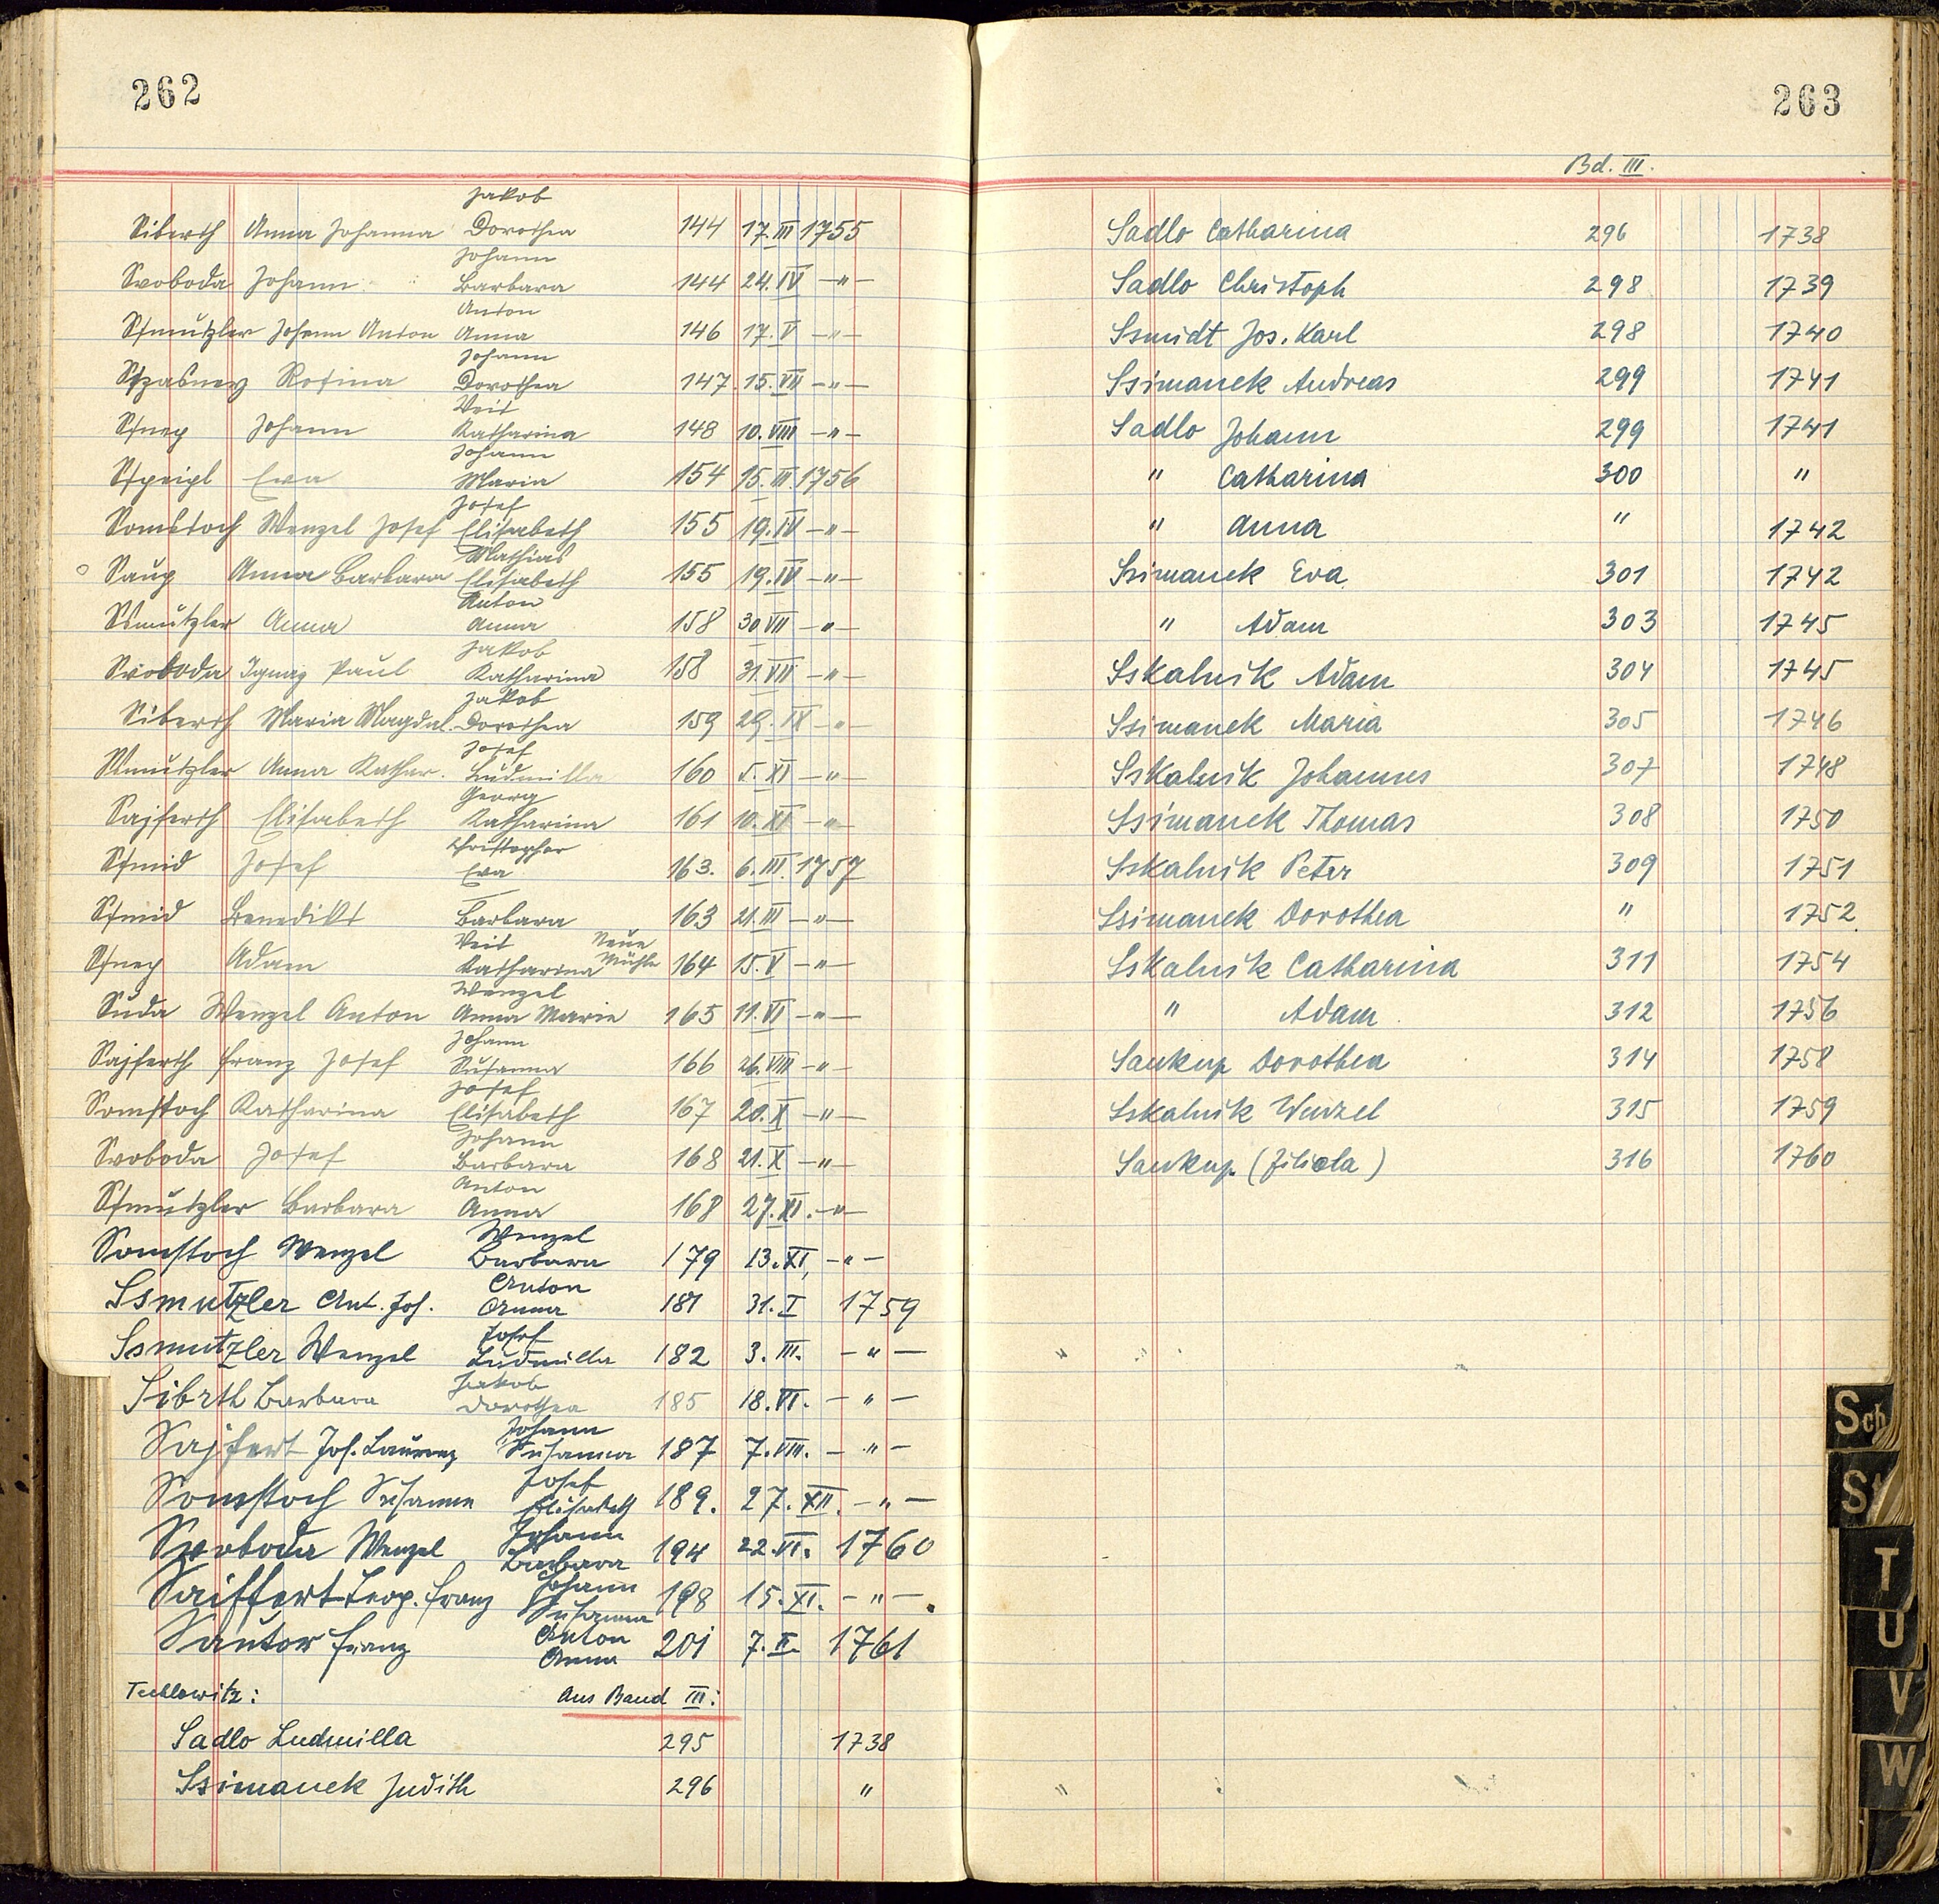 262
Jakob
Siberth Anna Johanna Dorothea 144 17. III 1755
Johann
Svoboda Johann Barbara 144 24. IV —"—
Anton
Schmutzler Johann Anton Anna 146 17. V —"—
Johann
Rosina Dorothea 147 15. VII —"—
Veit
Johann Katharina 148 10. VIII —"—
Johann
Eva Maria 154 15. III. 1756
Josef
Somstoch Wenzel Josef Elisabeth 155 19. IV —"—
Mathias
Anna Barbara Elisabeth 155 19. IV —"—
Anton
Ssmutzler Anna Anna 158 30 VII —"—
Jakob
Svoboda Ignaz Paul Katharina 158 31. VII —"—
Jakob
Siberth Maria Magdal. Dorothea 159 29. IX —"—
Josef
Ssmutzler Anna Kathar. Ludmilla 160 5. XI —"—
Georg
Sajferth Elisabeth Katharina 161 10. XI —"—
Christopher
Schmid Josef Eva 163. 6. III. 1757
—
Schmid Benedikt Barbara 163 21. III —"—
Veit Neue
Adam Katharina Mühle 164 15. V —"—
Wenzel
Suda Wenzel Anton Anna Marie 165 11. VI —"—
Johann
Sajferth Franz Josef Susanna 166 26. VIII —"—
Josef
Somstoch Katharina Elisabeth 167 20. X —"—
Johann
Svoboda Josef Barbara 168 21. X —"—
Anton
Schmutzler Barbara Anna 168 27. XI. —"—
Wenzel
Somstoch Wenzel Barbara 179 13. XI, —"—
Anton
Ssmutzler Ant. Jos. Anna 181 31. I 1759
Josef
Ssmutzler Wenzel Ludmilla 182 3. III. —"—
Jakob
Sibrth Barbara Dorothea 185 18. VI. —"—
Johann
Sajfert Jos. Laurenz Susanna 187 7. VIII. —"—
Josef
Somstoch Susanna Elisabeth 189. 27. XII. —"—
Johann
Svoboda Wenzel Barbara 194 22. VI. 1760
Johann
Saiffert Leop. Franz Susanna 198 15. XI. —"—
Anton
Sautor Franz Anna 201 7. II. 1761
Techlowitz: Aus Band III:
Sadlo Ludmilla 295 1738
Ssimanek Judith 296 "
263
Bd. III.
Sadlo Catharina 296 1738
Sadlo Christoph 298 1739
Ssmidt Jos. Karl 298 1740
Ssimanek Andreas 299 1741
Sadlo Johann 299 1741
" Catharina 300 "
" Anna " 1742
Ssimanek Eva 301 1742
" Adam 303 1745
Sskalnik Adam 304 1745
Ssimanek Maria 305 1746
Sskalnik Johannes 307 1748
Ssimanek Thomas 308 1750
Sskalnik Peter 309 1751
Ssimanek Dorothea " 1752
Sskalnik Catharina 311 1754
" Adam 312 1756
Saukup Dorothea 314 1758
Sskalnik Wenzel 315 1759
Saukup (filiola) 316 1760
Sch
T
U
V
W